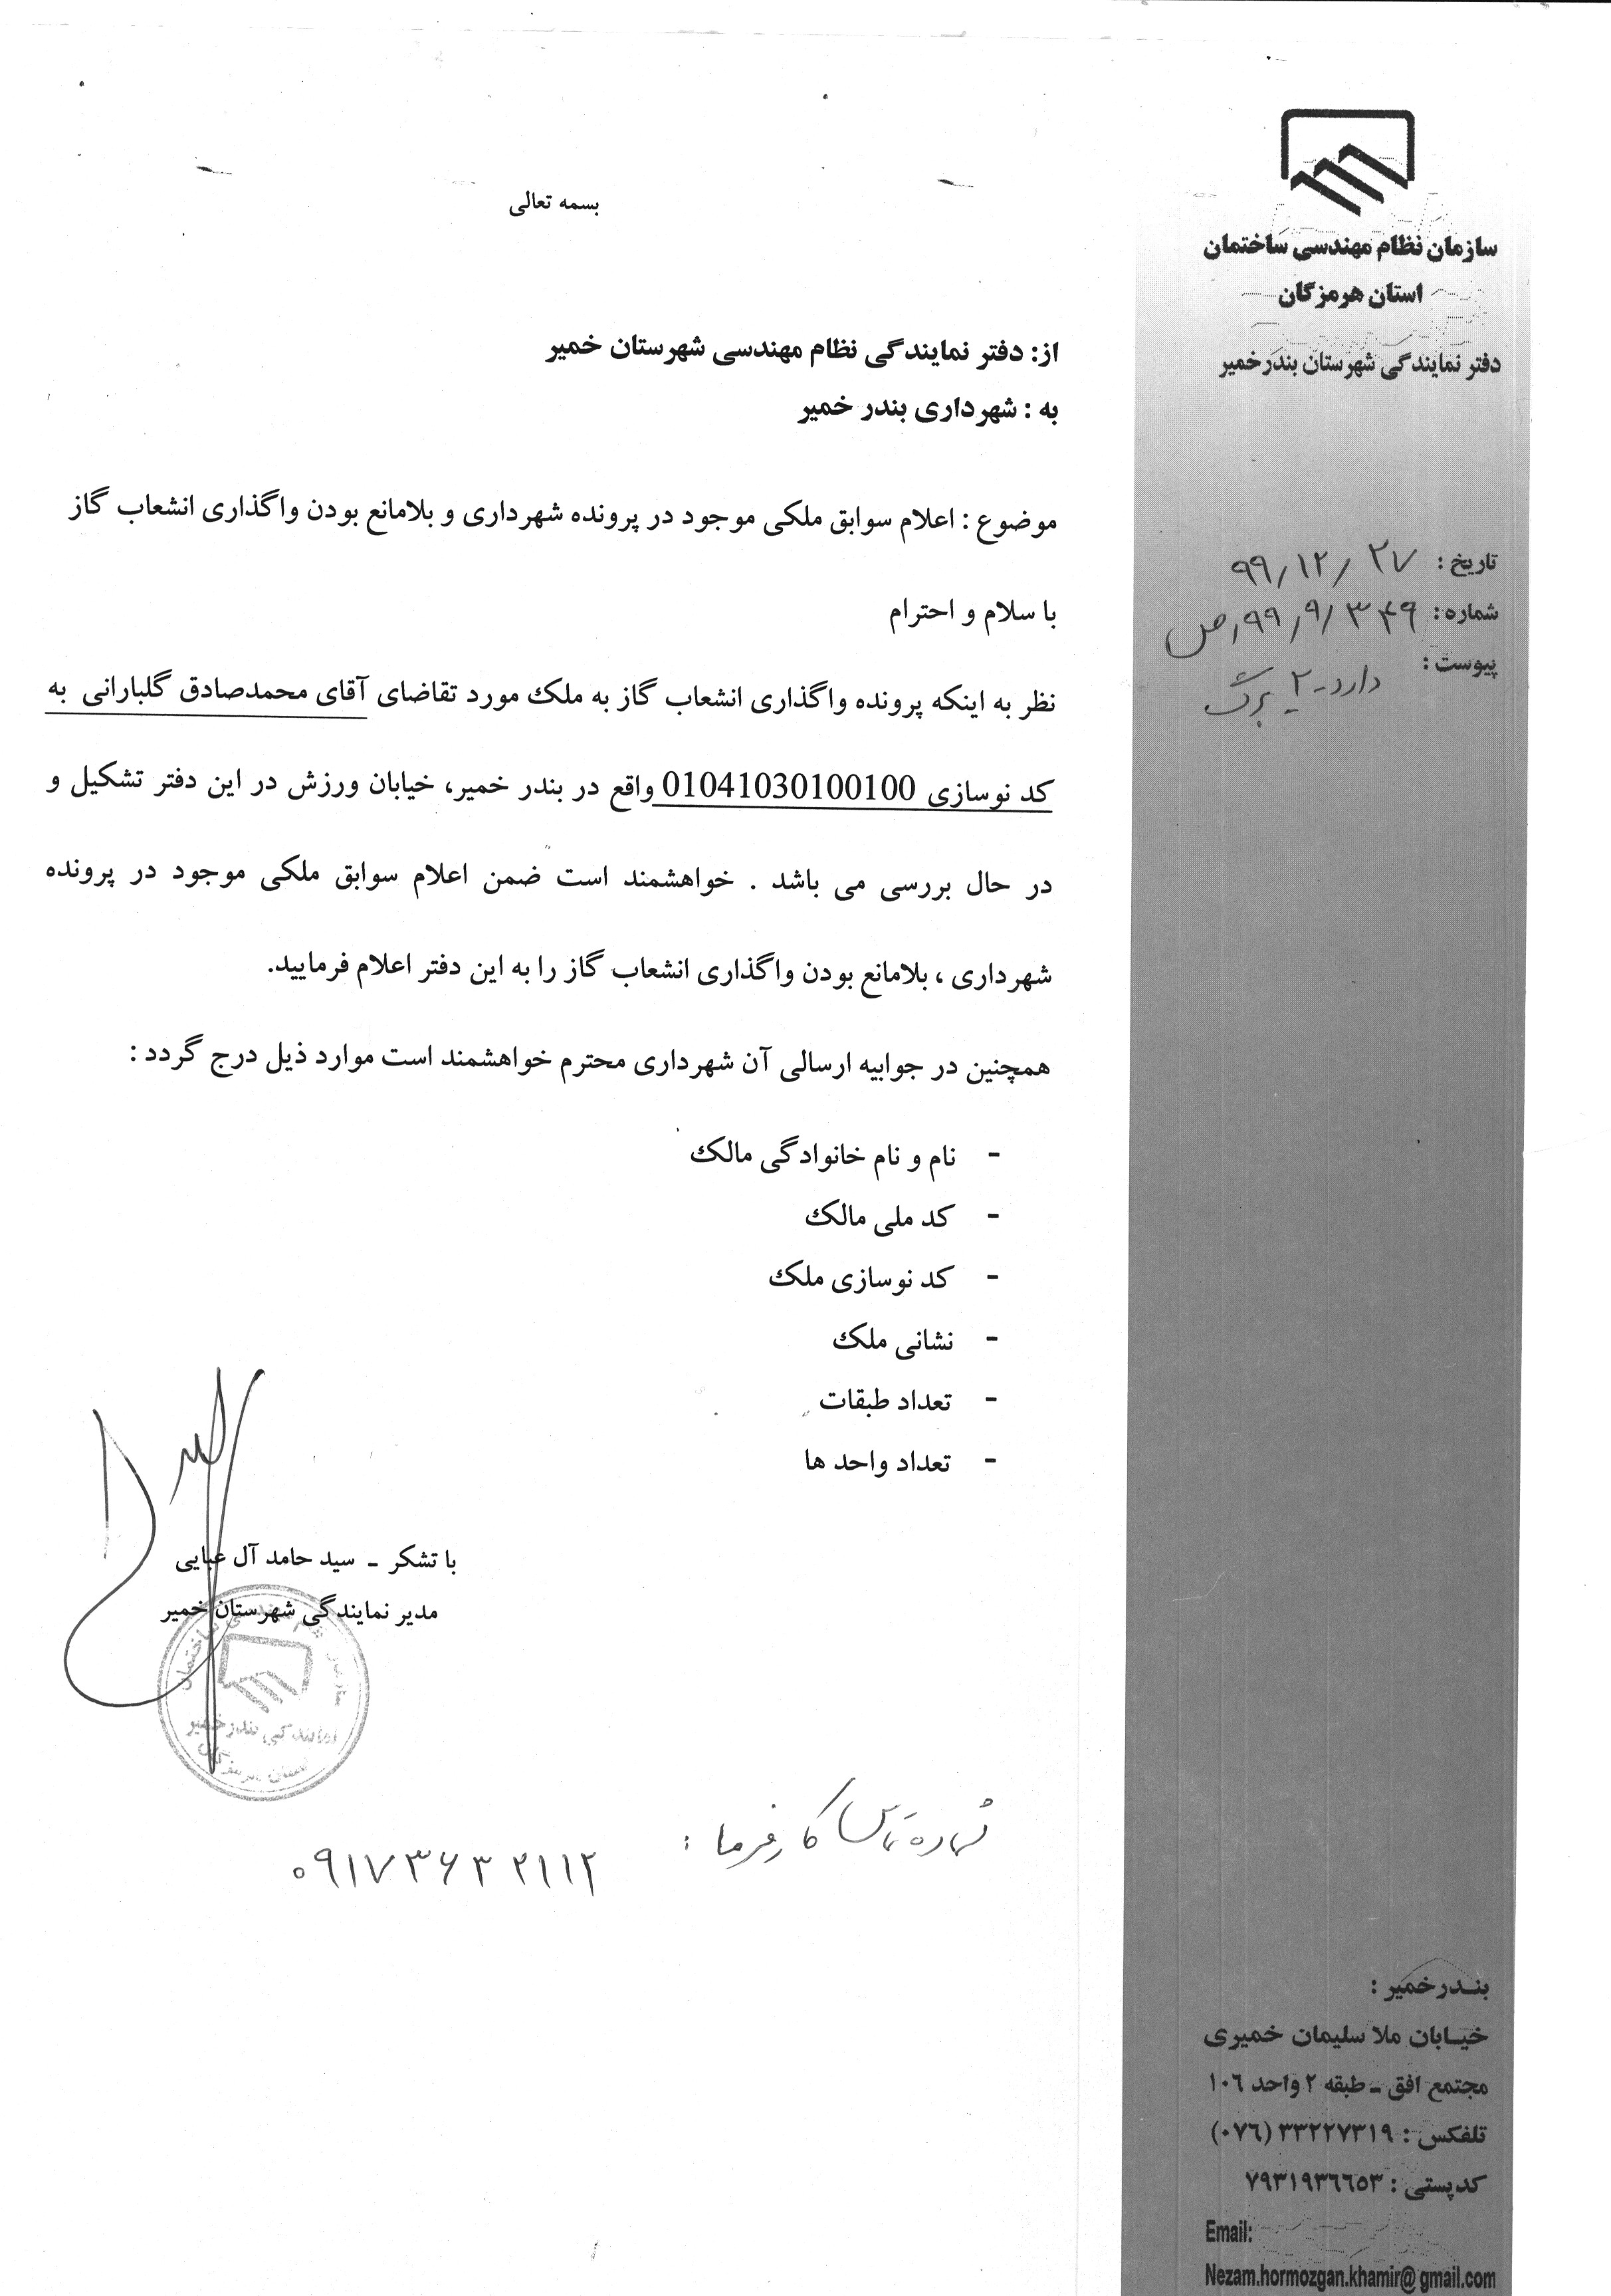 سازمان نظام مهندسی ساختمان
استان هرمزگان
دفتر نمایندگی شهرستان بندرخمیر
تاریخ : ۹۹/۱۲/۲۷
شماره : ۹۹/۹/۳۴۹/ص
پیوست : دارد-۲ برگ
بسمه تعالی
از: دفتر نمایندگی نظام مهندسی شهرستان خمیر
به : شهرداری بندر خمیر
موضوع : اعلام سوابق ملکی موجود در پرونده شهرداری و بلامانع بودن واگذاری انشعاب گاز
با سلام و احترام
نظر به اینکه پرونده واگذاری انشعاب گاز به ملک مورد تقاضای آقای محمدصادق گلبارانی به
کد نوسازی 01041030100100 واقع در بندر خمیر، خیابان ورزش در این دفتر تشکیل و
در حال بررسی می باشد . خواهشمند است ضمن اعلام سوابق ملکی موجود در پرونده
شهرداری ، بلامانع بودن واگذاری انشعاب گاز را به این دفتر اعلام فرمایید.
همچنین در جوابیه ارسالی آن شهرداری محترم خواهشمند است موارد ذیل درج گردد :
- نام و نام خانوادگی مالک
- کد ملی مالک
- کد نوسازی ملک
- نشانی ملک
- تعداد طبقات
- تعداد واحد ها
با تشکر - سید حامد آل عبایی
مدیر نمایندگی شهرستان خمیر
نمایندگی بندرخمیر
استان هرمزگان
شماره تماس کارفرما : ۰۹۱۷۳۶۳۲۱۱۲
بندرخمیر :
خیابان ملا سلیمان خمیری
مجتمع افق - طبقه ۲ واحد ۱۰۶
تلفکس : ۳۳۲۲۷۳۱۹ (۰۷۶)
کدپستی : ۷۹۳۱۹۳۶۶۵۳
Email:
Nezam.hormozgan.khamir@gmail.com